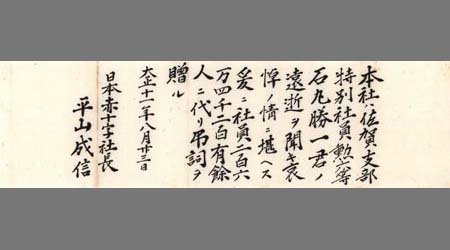 本社ハ佐賀支部
特別社員勲六等
石丸勝一君ノ
遠逝ヲ聞キ哀
悼ノ情ニ堪ヘス
爰ニ社員二百六
万四千二百有餘
人ニ代リ吊詞ヲ
贈ル
大正十一年八月廿三日
日本赤十字社長
平山成信